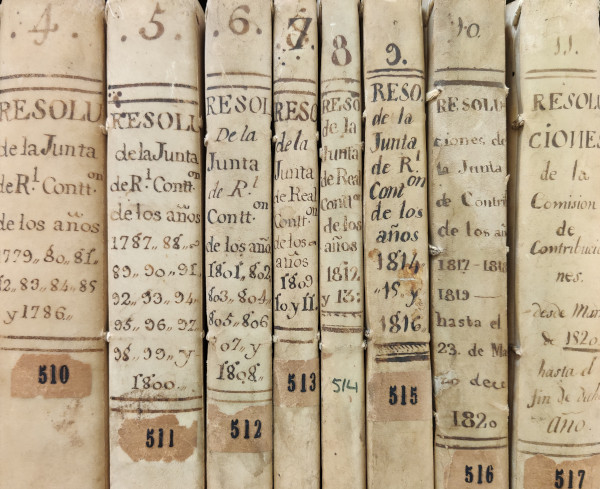 4.
RESOLU
de la Junta
de R.l Contt.on
de los años
1779,, 80,, 81,
82,, 83,, 84,, 85
y 1786,,
510
5.
RESOLU
de la Junta
de R.l Contt.on
de los años
1787,, 88,,
89,, 90,, 91,
92,, 93,, 94,,
95,, 96,, 97
98,, 99,, y
1800.
511
6.
RESOL
De la
Junta
de R.l
Contt.on
de los año
1801,, 802,
803,, 804,,
805,, 806
07,, y
1808,,
512
7.
RESO
de la
Junta
de Real
Contt.on
de los
años
1809
10 y 11.
513
8
RESO
de la
Junta
de Real
Cont.on
de los
años
1812
y 13.
514
9.
RESO.
de la
Junta
de R.l
Cont.on
de los
años
1814
,,15,, y
1816.
515
10.
RESOLU
ciones de
la Junta
de Contrib
de los añ
1817 - 1818
1819 —
hasta el
23. de Ma
dece
1820
516
11.
RESOLU
CIONES
de la
Comision
de
Contribucio
nes.
desde Mar
de 1820
hasta el
fin de dicho
Año.
517